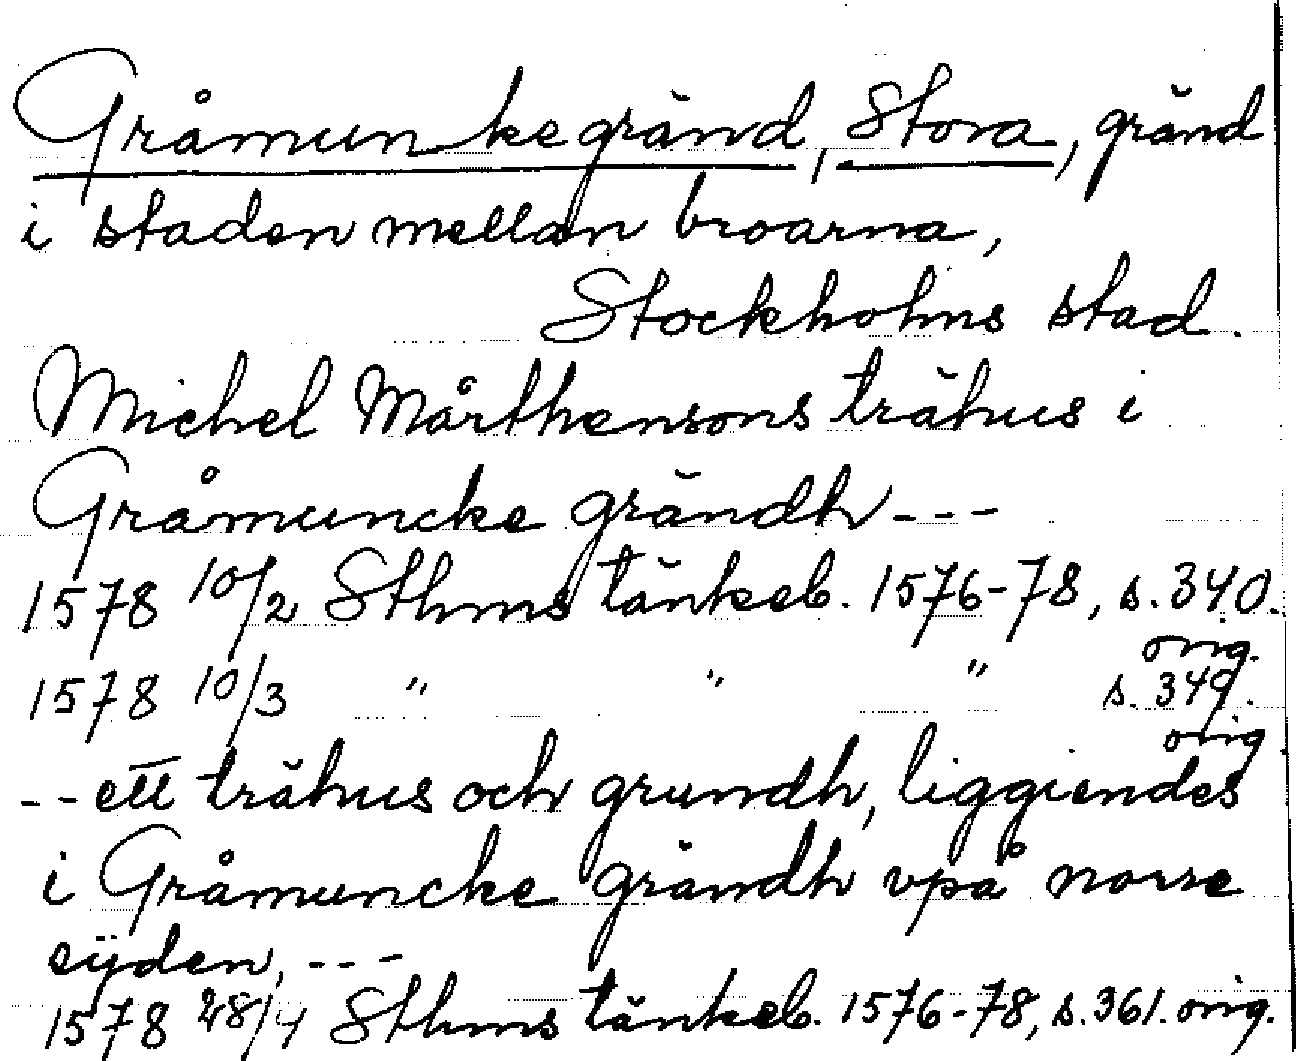 Gråmunkegränd, Stora, gränd
i staden mellan broarna,
Stockholms stad.
Michel Mårthensons trähus i
Gråmuncke grändh - - -
1578 10/2 Sthms tänkeb. 1576-78, s. 340.
orig.
1578 10/3 " " " s. 349.
orig.
- - ett trähus och grundh, liggiendes
i Gråmuncke grändh vpå norre
sÿden, - - -
1578 28/4 Sthms tänkeb. 1576-78, s. 361. orig.